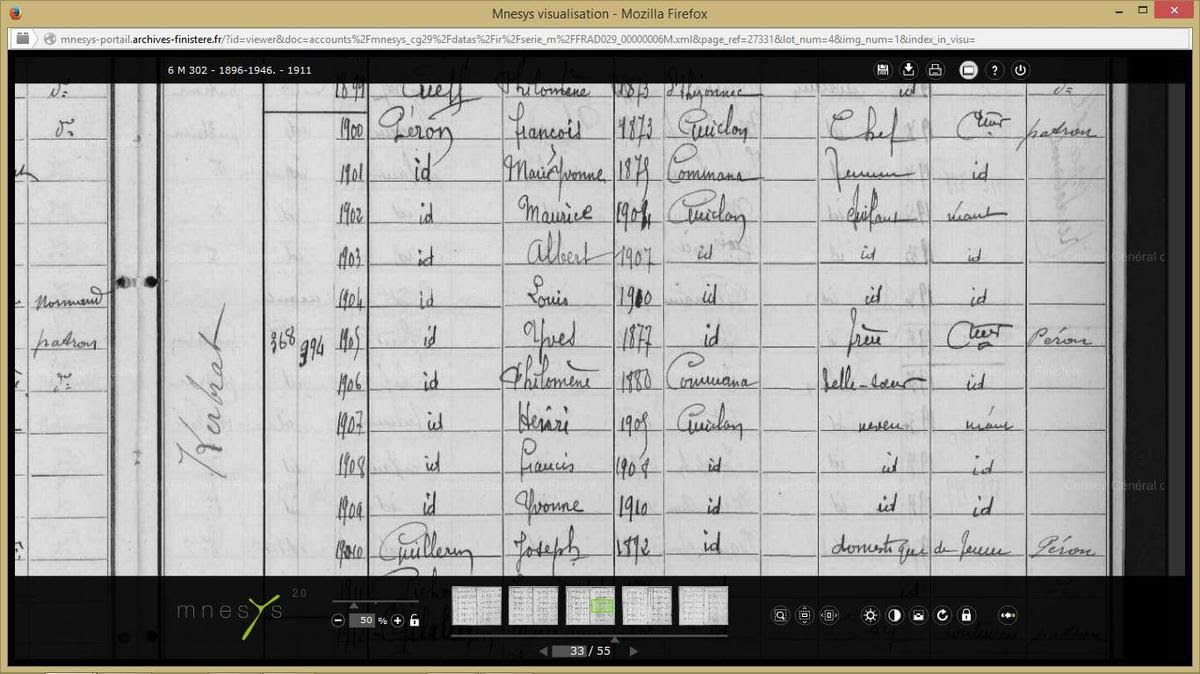 Mnesys visualisation - Mozilla Firefox
mnesys-portail.archives-finistere.fr/?id=viewer&doc=accounts%2Fmnesys_cg29%2Fdatas%2Fir%2Fserie_m%2FFRAD029_00000006M.xml&page_ref=27331&lot_num=4&img_num=1&index_in_visu=
6 M 302 - 1896-1946. - 1911
1899 Queff Philomène 1873 id d=
1900 Péron François 1873 Guiclan Chef Cteur patron
1901 id Marie Yvonne 1879 Commana id
1902 id Maurice Guiclan enfant néant
1903 id Albert 1907 id id id
1904 id Louis 1910 id id id
Normand
patron
Kerbrat
368 994 1905 id Yves 1877 id frère Cteur Péron
1906 id Philomène 1880 Commana belle-soeur id
1907 id Henri Guiclan neveu néant
1908 id Francis 1908 id id id
1909 id Yvonne 1910 id id id
1910 Guillerm Joseph 1892 id domestique de ferme Péron
mnesys 2.0
50 %
33 / 55